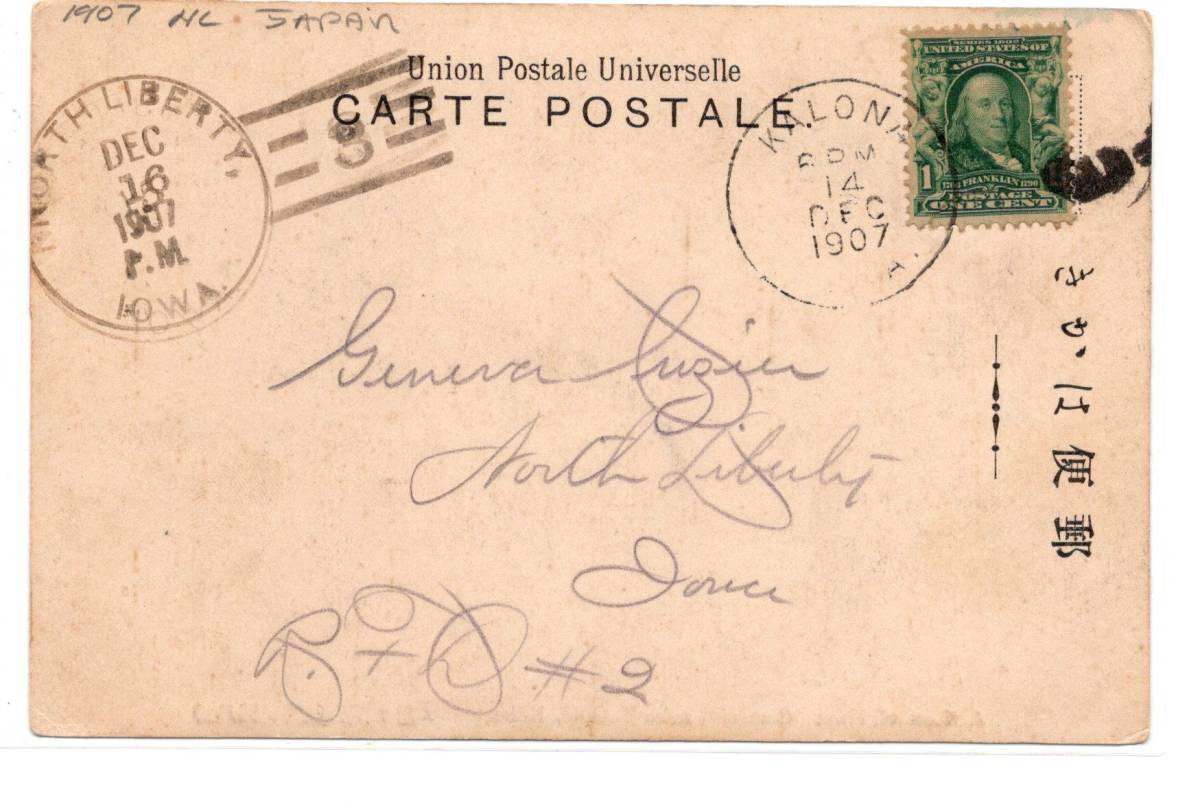 1907 NL JAPAN
Union Postale Universelle
CARTE POSTALE.
NORTH LIBERTY,
DEC
16
1907
P.M.
IOWA.
3
KALONA
PM
14
DEC
1907
A.
SERIES 1902
UNITED STATES OF
AMERICA
1
1706 FRANKLIN 1790
POSTAGE
ONE CENT
郵便はかき
Geneva
North Liberty
Iowa
R.F.D #2